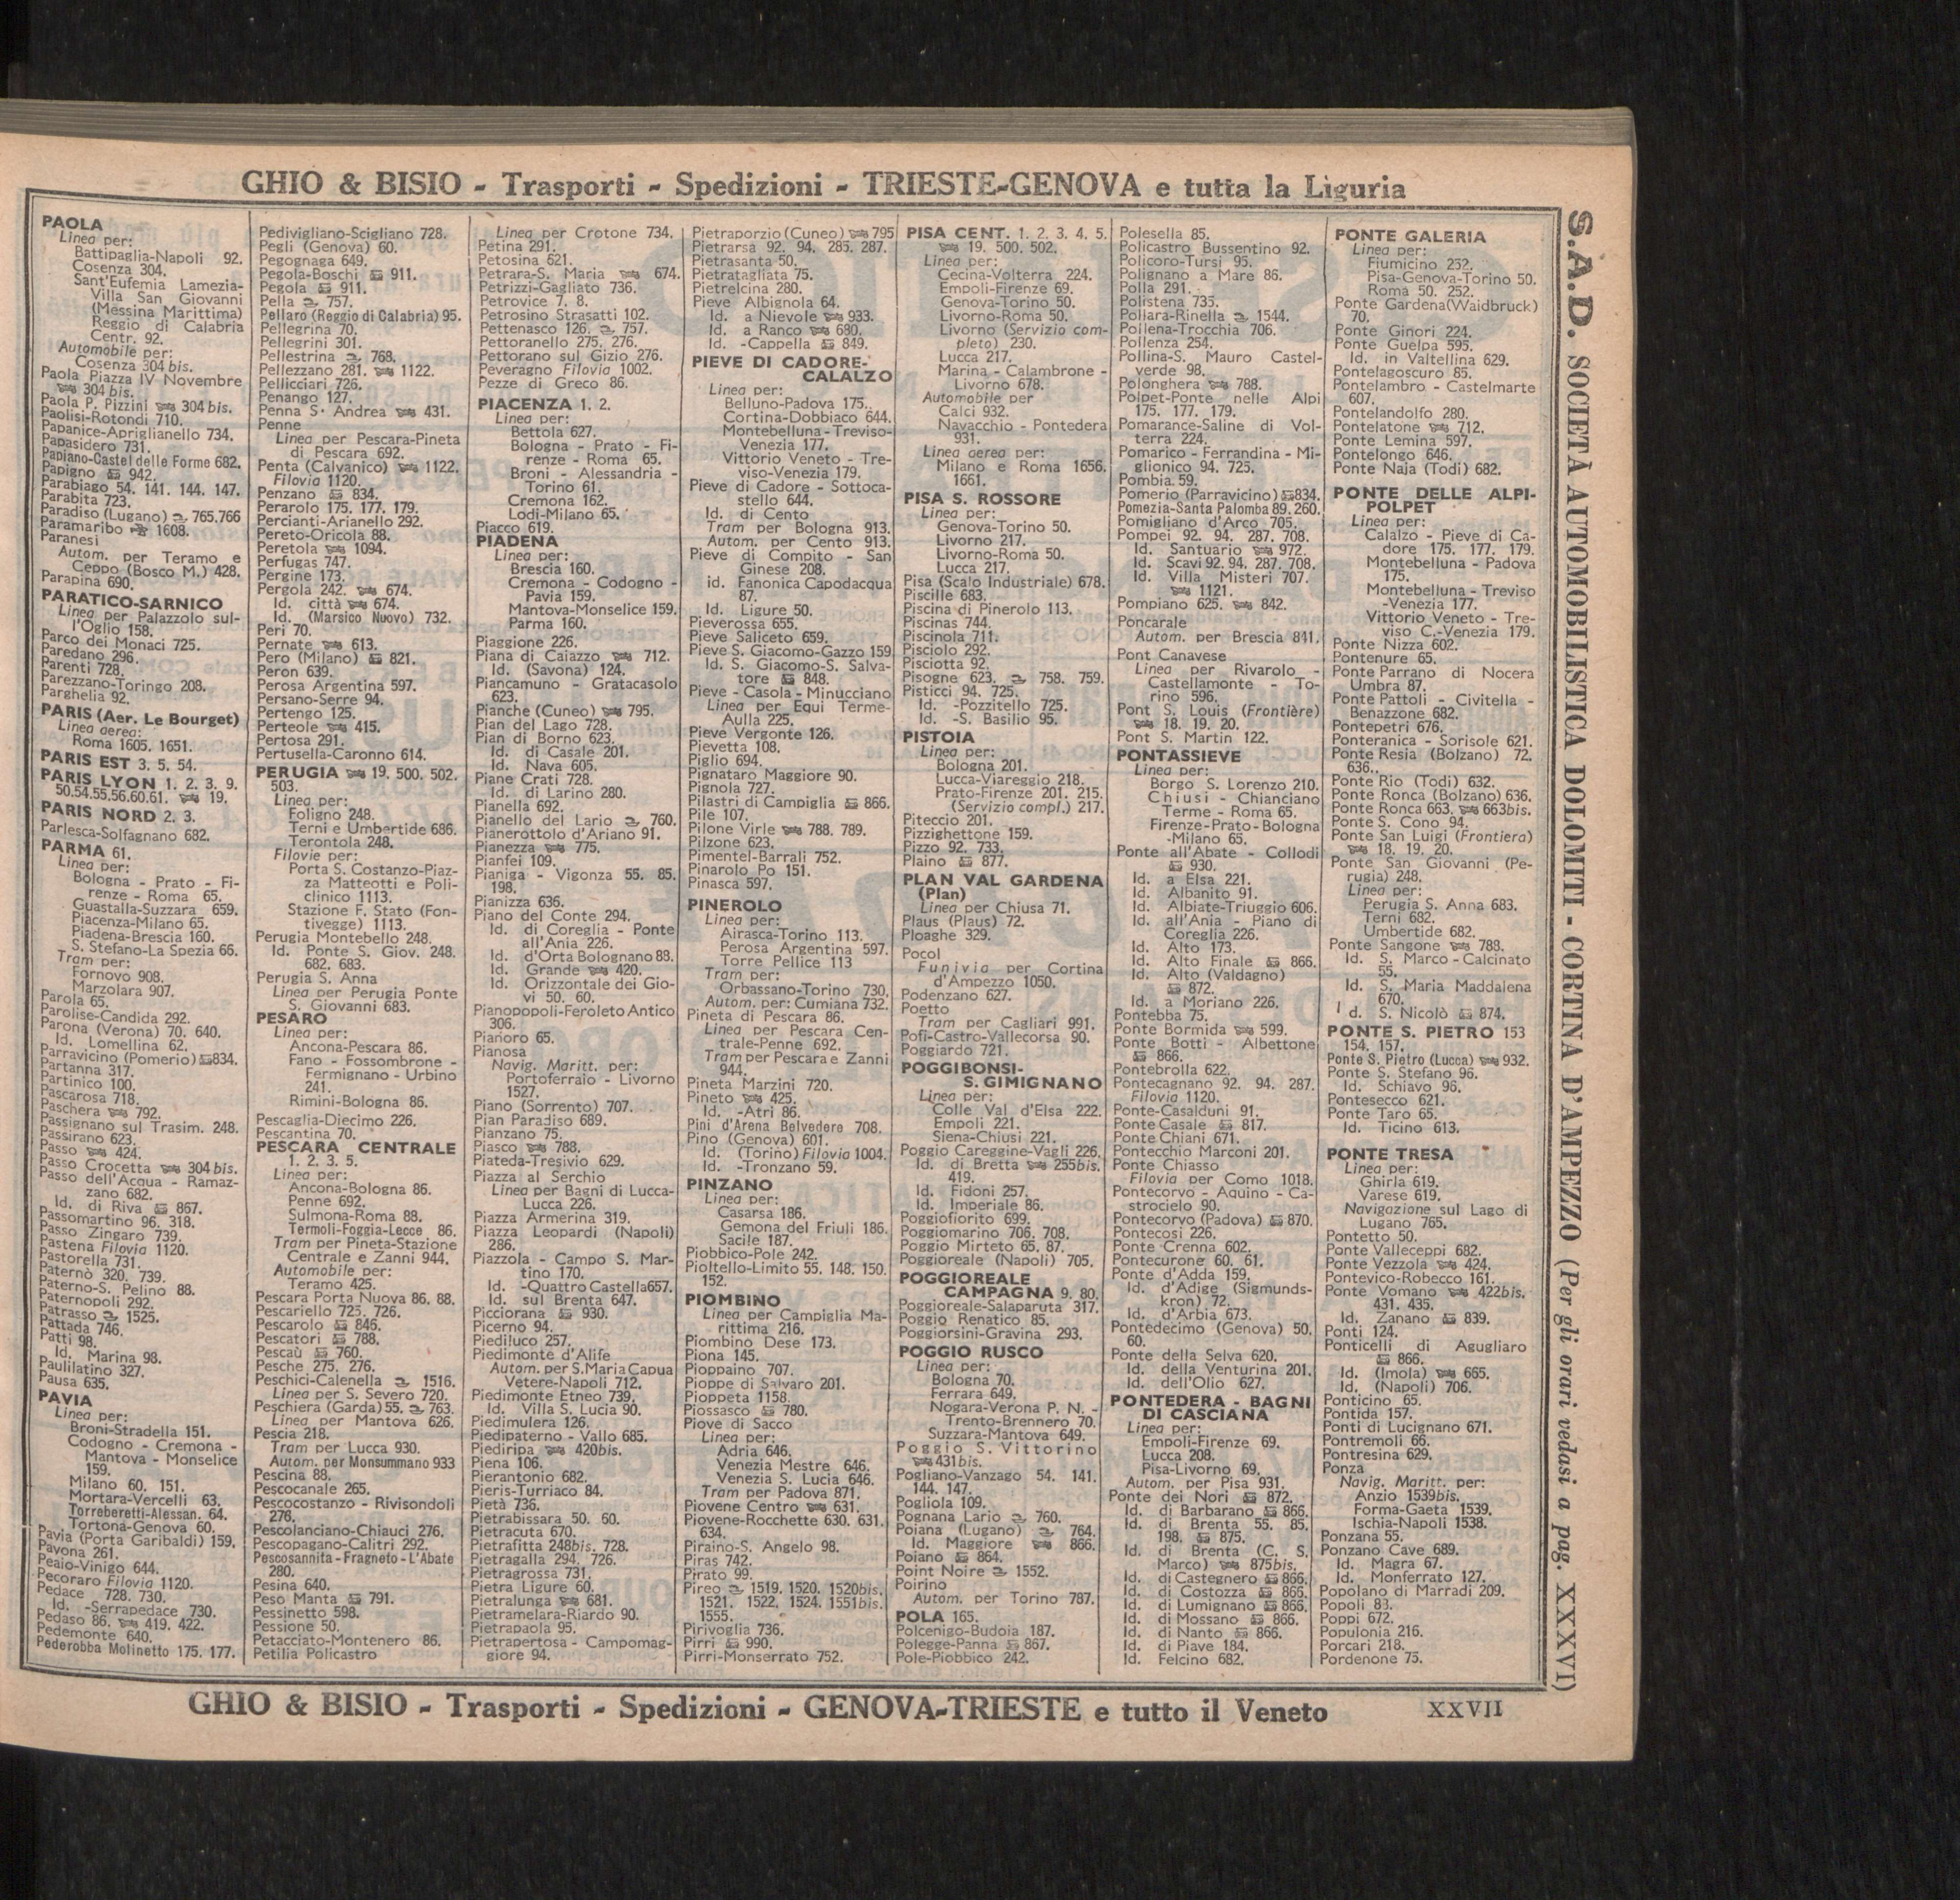 GHIO & BISIO - Trasporti - Spedizioni - TRIESTE-GENOVA e tutta la Liguria
PAOLA
Linea per:
Battipaglia-Napoli 92.
Cosenza 304.
Sant'Eufemia Lamezia-
Villa San Giovanni
(Messina Marittima)
Reggio di Calabria
Centr. 92.
Automobile per:
Cosenza 304 bis.
Paola Piazza IV Novembre
304 bis.
Paola P. Pizzini 304 bis.
Paolisi-Rotondi 710.
Papanice-Apriglianello 734.
Papasidero 731.
Papiano-Castel delle Forme 682.
Papigno 942.
Parabiago 54. 141. 144. 147.
Parabita 723.
Paradiso (Lugano) 765.766
Paramaribo 1608.
Paranesi
Autom. per Teramo e
Ceppo (Bosco M.) 428.
Parapina 690.
PARATICO-SARNICO
Linea per Palazzolo sul-
l'Oglio 158.
Parco dei Monaci 725.
Paredano 296.
Parenti 728.
Parezzano-Toringo 208.
Parghelia 92.
PARIS (Aer. Le Bourget)
Linea aerea:
Roma 1605. 1651.
PARIS EST 3. 5. 54.
PARIS LYON 1. 2. 3. 9.
50.54.55.56.60.61. 19.
PARIS NORD 2. 3.
Parlesca-Solfagnano 682.
PARMA 61.
Linea per:
Bologna - Prato - Fi-
renze - Roma 65.
Guastalla-Suzzara 659.
Piacenza-Milano 65.
Piadena-Brescia 160.
S. Stefano-La Spezia 66.
Tram per:
Fornovo 908.
Marzolara 907.
Parola 65.
Parolise-Candida 292.
Parona (Verona) 70. 640.
Id. Lomellina 62.
Parravicino (Pomerio) 834.
Partanna 317.
Partinico 100.
Pascarosa 718.
Paschera 792.
Passignano sul Trasim. 248.
Passirano 623.
Passo 424.
Passo Crocetta 304 bis.
Passo dell'Acqua - Ramaz-
zano 682.
Id. di Riva 867.
Passomartino 96. 318.
Passo Zingaro 739.
Pastena Filovia 1120.
Pastorella 731.
Paternò 320. 739.
Paterno-S. Pelino 88.
Paternopoli 292.
Patrasso 1525.
Pattada 746.
Patti 98.
Id. Marina 98.
Paulilatino 327.
Pausa 635.
PAVIA
Linea per:
Broni-Stradella 151.
Codogno - Cremona -
Mantova - Monselice
159.
Milano 60. 151.
Mortara-Vercelli 63.
Torreberetti-Alessan. 64.
Tortona-Genova 60.
Pavia (Porta Garibaldi) 159.
Pavona 261.
Peaio-Vinigo 644.
Pecoraro Filovia 1120.
Pedace 728. 730.
Id. -Serrapedace 730.
Pedaso 86. 419. 422.
Pedemonte 640.
Pederobba Molinetto 175. 177.
Pedivigliano-Scigliano 728.
Pegli (Genova) 60.
Pegognaga 649.
Pegola-Boschi 911.
Pegola 911.
Pella 757.
Pellaro (Reggio di Calabria) 95.
Pellegrina 70.
Pellegrini 301.
Pellestrina 768.
Pellezzano 281. 1122.
Pellicciari 726.
Penango 127.
Penna S. Andrea 431.
Penne
Linea per Pescara-Pineta
di Pescara 692.
Penta (Calvanico) 1122.
Filovia 1120.
Penzano 834.
Perarolo 175. 177. 179.
Percianti-Arianello 292.
Pereto-Oricola 88.
Peretola 1094.
Perfugas 747.
Pergine 173.
Pergola 242. 674.
Id. città 674.
Id. (Marsico Nuovo) 732.
Peri 70.
Pernate 613.
Pero (Milano) 821.
Peron 639.
Perosa Argentina 597.
Persano-Serre 94.
Pertengo 125.
Perteole 415.
Pertosa 291.
Pertusella-Caronno 614.
PERUGIA 19. 500. 502.
503.
Linea per:
Foligno 248.
Terni e Umbertide 686.
Terontola 248.
Filovie per:
Porta S. Costanzo-Piaz-
za Matteotti e Poli-
clinico 1113.
Stazione F. Stato (Fon-
tivegge) 1113.
Perugia Montebello 248.
Id. Ponte S. Giov. 248.
682. 683.
Perugia S. Anna
Linea per Perugia Ponte
S. Giovanni 683.
PESARO
Linea per:
Ancona-Pescara 86.
Fano - Fossombrone -
Fermignano - Urbino
241.
Rimini-Bologna 86.
Pescaglia-Diecimo 226.
Pescantina 70.
PESCARA CENTRALE
1. 2. 3. 5.
Linea per:
Ancona-Bologna 86.
Penne 692.
Sulmona-Roma 88.
Termoli-Foggia-Lecce 86.
Tram per Pineta-Stazione
Centrale e Zanni 944.
Automobile per:
Teramo 425.
Pescara Porta Nuova 86. 88.
Pescariello 725. 726.
Pescarolo 846.
Pescatori 788.
Pescaù 760.
Pesche 275. 276.
Peschici-Calenella 1516.
Linea per S. Severo 720.
Peschiera (Garda) 55. 763.
Linea per Mantova 626.
Pescia 218.
Tram per Lucca 930.
Autom. per Monsummano 933
Pescina 88.
Pescocanale 265.
Pescocostanzo - Rivisondoli
276.
Pescolanciano-Chiauci 276.
Pescopagano-Calitri 292.
Pescosannita-Fragneto-L'Abate
280.
Pesina 640.
Peso Manta 791.
Pessinetto 598.
Pessione 50.
Petacciato-Montenero 86.
Petilia Policastro
Linea per Crotone 734.
Petina 291.
Petosina 621.
Petrara-S. Maria 674.
Petrizzi-Gagliato 736.
Petrovice 7. 8.
Petrosino Strasatti 102.
Pettenasco 126. 757.
Pettoranello 275. 276.
Pettorano sul Gizio 276.
Peveragno Filovia 1002.
Pezze di Greco 86.
PIACENZA 1. 2.
Linea per:
Bettola 627.
Bologna - Prato - Fi-
renze - Roma 65.
Broni - Alessandria -
Torino 61.
Cremona 162.
Lodi-Milano 65.
Piacco 619.
PIADENA
Linea per:
Brescia 160.
Cremona - Codogno -
Pavia 159.
Mantova-Monselice 159.
Parma 160.
Piaggione 226.
Piana di Caiazzo 712.
Id. (Savona) 124.
Piancamuno - Gratacasolo
623.
Pianche (Cuneo) 795.
Pian del Lago 728.
Pian di Borno 623.
Id. di Casale 201.
Id. Nava 605.
Piane Crati 728.
Id. di Larino 280.
Pianella 692.
Pianello del Lario 760.
Pianerottolo d'Ariano 91.
Pianezza 775.
Pianfei 109.
Pianiga - Vigonza 55. 85.
198.
Pianizza 636.
Piano del Conte 294.
Id. di Coreglia - Ponte
all'Ania 226.
Id. d'Orta Bolognano 88.
Id. Grande 420.
Id. Orizzontale dei Gio-
vi 50. 60.
Pianopopoli-Feroleto Antico
306.
Pianoro 65.
Pianosa
Navig. Maritt. per:
Portoferraio - Livorno
1527.
Piano (Sorrento) 707.
Pian Paradiso 689.
Pianzano 75.
Piasco 788.
Piateda-Tresivio 629.
Piazza al Serchio
Linea per Bagni di Lucca-
Lucca 226.
Piazza Armerina 319.
Piazza Leopardi (Napoli)
286.
Piazzola - Campo S. Mar-
tino 170.
Id. -Quattro Castella 657.
Id. sul Brenta 647.
Picciorana 930.
Picerno 94.
Piediluco 257.
Piedimonte d'Alife
Autom. per S. Maria Capua
Vetere-Napoli 712.
Piedimonte Etneo 739.
Id. Villa S. Lucia 90.
Piedimulera 126.
Piedipaterno - Vallo 685.
Piediripa 420bis.
Piena 106.
Pierantonio 682.
Pieris-Turriaco 84.
Pietà 736.
Pietrabissara 50. 60.
Pietracuta 670.
Pietrafitta 248bis. 728.
Pietragalla 294. 726.
Pietragrossa 731.
Pietra Ligure 60.
Pietralunga 681.
Pietramelara-Riardo 90.
Pietrapaola 95.
Pietrapertosa - Campomag-
giore 94.
Pietraporzio (Cuneo) 795
Pietrarsa 92. 94. 285. 287.
Pietrasanta 50.
Pietratagliata 75.
Pietrelcina 280.
Pieve Albignola 64.
Id. a Nievole 933.
Id. a Ranco 680.
Id. -Cappella 849.
PIEVE DI CADORE-
CALALZO
Linea per:
Belluno-Padova 175.
Cortina-Dobbiaco 644.
Montebelluna-Treviso-
Venezia 177.
Vittorio Veneto - Tre-
viso-Venezia 179.
Pieve di Cadore - Sottoca-
stello 644.
Id. di Cento
Tram per Bologna 913.
Autom. per Cento 913.
Pieve di Compito - San
Ginese 208.
id. Fanonica Capodacqua
87.
Id. Ligure 50.
Pieverossa 655.
Pieve Saliceto 659.
Pieve S. Giacomo-Gazzo 159
Id. S. Giacomo-S. Salva-
tore 848.
Pieve - Casola - Minucciano
Linea per Equi Terme-
Aulla 225.
Pieve Vergonte 126.
Pievetta 108.
Piglio 694.
Pignataro Maggiore 90.
Pignola 727.
Pilastri di Campiglia 866.
Pile 107.
Pilone Virle 788. 789.
Pilzone 623.
Pimentel-Barrali 752.
Pinarolo Po 151.
Pinasca 597.
PINEROLO
Linea per:
Airasca-Torino 113.
Perosa Argentina 597.
Torre Pellice 113
Tram per:
Orbassano-Torino 730.
Autom. per: Cumiana 732.
Pineta di Pescara 86.
Linea per Pescara Cen-
trale-Penne 692.
Tram per Pescara e Zanni
944.
Pineta Marzini 720.
Pineto 425.
Id. -Atri 86.
Pini d'Arena Belvedere 708.
Pino (Genova) 601.
Id. (Torino) Filovia 1004.
Id. -Tronzano 59.
PINZANO
Linea per:
Casarsa 186.
Gemona del Friuli 186.
Sacile 187.
Piobbico-Pole 242.
Pioltello-Limito 55. 148. 150.
152.
PIOMBINO
Linea per Campiglia Ma-
rittima 216.
Piombino Dese 173.
Piona 145.
Pioppaino 707.
Pioppe di Salvaro 201.
Pioppeta 1158.
Piossasco 780.
Piove di Sacco
Linea per:
Adria 646.
Venezia Mestre 646.
Venezia S. Lucia 646.
Tram per Padova 871.
Piovene Centro 631.
Piovene-Rocchette 630. 631.
634.
Piraino-S. Angelo 98.
Piras 742.
Pirato 99.
Pireo 1519. 1520. 1520bis.
1521. 1522. 1524. 1551bis.
1555.
Pirivoglia 736.
Pirri 990.
Pirri-Monserrato 752.
PISA CENT. 1. 2. 3. 4. 5.
19. 500. 502.
Linea per:
Cecina-Volterra 224.
Empoli-Firenze 69.
Genova-Torino 50.
Livorno-Roma 50.
Livorno (Servizio com-
pleto) 230.
Lucca 217.
Marina - Calambrone -
Livorno 678.
Automobile per
Calci 932.
Navacchio - Pontedera
931.
Linea aerea per:
Milano e Roma 1656.
1661.
PISA S. ROSSORE
Linea per:
Genova-Torino 50.
Livorno 217.
Livorno-Roma 50.
Lucca 217.
Pisa (Scalo Industriale) 678.
Piscille 683.
Piscina di Pinerolo 113.
Piscinas 744.
Piscinola 711.
Pisciolo 292.
Pisciotta 92.
Pisogne 623. 758. 759.
Pisticci 94. 725.
Id. -Pozzitello 725.
Id. -S. Basilio 95.
PISTOIA
Linea per:
Bologna 201.
Lucca-Viareggio 218.
Prato-Firenze 201. 215.
(Servizio compl.) 217.
Piteccio 201.
Pizzighettone 159.
Pizzo 92. 733.
Plaino 877.
PLAN VAL GARDENA
(Plan)
Linea per Chiusa 71.
Plaus (Plaus) 72.
Ploaghe 329.
Pocol
Funivia per Cortina
d'Ampezzo 1050.
Podenzano 627.
Poetto
Tram per Cagliari 991.
Pofi-Castro-Vallecorsa 90.
Poggiardo 721.
POGGIBONSI-
S. GIMIGNANO
Linea per:
Colle Val d'Elsa 222.
Empoli 221.
Siena-Chiusi 221.
Poggio Careggine-Vagli 226.
Id. di Bretta 255bis.
419.
Id. Fidoni 257.
Id. Imperiale 86.
Poggiofiorito 699.
Poggiomarino 706. 708.
Poggio Mirteto 65. 87.
Poggioreale (Napoli) 705.
POGGIOREALE
CAMPAGNA 9. 80.
Poggioreale-Salaparuta 317.
Poggio Renatico 85.
Poggiorsini-Gravina 293.
POGGIO RUSCO
Linea per:
Bologna 70.
Ferrara 649.
Nogara-Verona P. N. -
Trento-Brennero 70.
Suzzara-Mantova 649.
Poggio S. Vittorino
431bis.
Pogliano-Vanzago 54. 141.
144. 147.
Pogliola 109.
Pognana Lario 760.
Poiana (Lugano) 764.
Id. Maggiore 866.
Poiano 864.
Point Noire 1552.
Poirino
Autom. per Torino 787.
POLA 165.
Polcenigo-Budoia 187.
Polegge-Panna 867.
Pole-Piobbico 242.
Polesella 85.
Policastro Bussentino 92.
Policoro-Tursi 95.
Polignano a Mare 86.
Polla 291.
Polistena 735.
Pollara-Rinella 1544.
Pollena-Trocchia 706.
Pollenza 254.
Pollina-S. Mauro Castel-
verde 98.
Polonghera 788.
Polpet-Ponte nelle Alpi
175. 177. 179.
Pomarance-Saline di Vol-
terra 224.
Pomarico - Ferrandina - Mi-
glionico 94. 725.
Pombia 59.
Pomerio (Parravicino) 834.
Pomezia-Santa Palomba 89. 260.
Pomigliano d'Arco 705.
Pompei 92. 94. 287. 708.
Id. Santuario 972.
Id. Scavi 92. 94. 287. 708.
Id. Villa Misteri 707.
1121.
Pompiano 625. 842.
Poncarale
Autom. per Brescia 841.
Pont Canavese
Linea per Rivarolo -
Castellamonte - To-
rino 596.
Pont S. Louis (Frontière)
18. 19. 20.
Pont S. Martin 122.
PONTASSIEVE
Linea per:
Borgo S. Lorenzo 210.
Chiusi - Chianciano
Terme - Roma 65.
Firenze-Prato-Bologna
-Milano 65.
Ponte all'Abate - Collodi
930.
Id. a Elsa 221.
Id. Albanito 91.
Id. Albiate-Triuggio 606.
Id. all'Ania - Piano di
Coreglia 226.
Id. Alto 173.
Id. Alto Finale 866.
Id. Alto (Valdagno)
872.
Id. a Moriano 226.
Pontebba 75.
Ponte Bormida 599.
Ponte Botti - Albettone
866.
Pontebrolla 622.
Pontecagnano 92. 94. 287.
Filovia 1120.
Ponte-Casalduni 91.
Ponte Casale 817.
Ponte Chiani 671.
Pontecchio Marconi 201.
Ponte Chiasso
Filovia per Como 1018.
Pontecorvo - Aquino - Ca-
strocielo 90.
Pontecorvo (Padova) 870.
Pontecosi 226.
Ponte Crenna 602.
Pontecurone 60. 61.
Ponte d'Adda 159.
Id. d'Adige (Sigmunds-
kron) 72.
Id. d'Arbia 673.
Pontedecimo (Genova) 50.
60.
Ponte della Selva 620.
Id. della Venturina 201.
Id. dell'Olio 627.
PONTEDERA - BAGNI
DI CASCIANA
Linea per:
Empoli-Firenze 69.
Lucca 208.
Pisa-Livorno 69.
Autom. per Pisa 931.
Ponte dei Nori 872.
Id. di Barbarano 866.
Id. di Brenta 55. 85.
198. 875.
Id. di Brenta (C. S.
Marco) 875bis.
Id. di Castegnero 866.
Id. di Costozza 866.
Id. di Lumignano 866.
Id. di Mossano 866.
Id. di Nanto 866.
Id. di Piave 184.
Id. Felcino 682.
PONTE GALERIA
Linea per:
Fiumicino 252.
Pisa-Genova-Torino 50.
Roma 50. 252.
Ponte Gardena(Waidbruck)
70.
Ponte Ginori 224.
Ponte Guelpa 595.
Id. in Valtellina 629.
Pontelagoscuro 85.
Pontelambro - Castelmarte
607.
Pontelandolfo 280.
Pontelatone 712.
Ponte Lemina 597.
Pontelongo 646.
Ponte Naja (Todi) 682.
PONTE DELLE ALPI-
POLPET
Linea per:
Calalzo - Pieve di Ca-
dore 175. 177. 179.
Montebelluna - Padova
175.
Montebelluna - Treviso
-Venezia 177.
Vittorio Veneto - Tre-
viso C.-Venezia 179.
Ponte Nizza 602.
Pontenure 65.
Ponte Parrano di Nocera
Umbra 87.
Ponte Pattoli - Civitella -
Benazzone 682.
Pontepetri 676.
Ponteranica - Sorisole 621.
Ponte Resia (Bolzano) 72.
636.
Ponte Rio (Todi) 632.
Ponte Ronca (Bolzano) 636.
Ponte Ronca 663. 663bis.
Ponte S. Cono 94.
Ponte San Luigi (Frontiera)
18. 19. 20.
Ponte San Giovanni (Pe-
rugia) 248.
Linea per:
Perugia S. Anna 683.
Terni 682.
Umbertide 682.
Ponte Sangone 788.
Id. S. Marco - Calcinato
55.
Id. S. Maria Maddalena
670.
Id. S. Nicolò 874.
PONTE S. PIETRO 153
154. 157.
Ponte S. Pietro (Lucca) 932.
Ponte S. Stefano 96.
Id. Schiavo 96.
Pontesecco 621.
Ponte Taro 65.
Id. Ticino 613.
PONTE TRESA
Linea per:
Ghirla 619.
Varese 619.
Navigazione sul Lago di
Lugano 765.
Pontetto 50.
Ponte Valleceppi 682.
Ponte Vezzola 424.
Pontevico-Robecco 161.
Ponte Vomano 422bis.
431. 435.
Id. Zanano 839.
Ponti 124.
Ponticelli di Agugliaro
866.
Id. (Imola) 665.
Id. (Napoli) 706.
Ponticino 65.
Pontida 157.
Ponti di Lucignano 671.
Pontremoli 66.
Pontresina 629.
Ponza
Navig. Maritt. per:
Anzio 1539bis.
Forma-Gaeta 1539.
Ischia-Napoli 1538.
Ponzana 55.
Ponzano Cave 689.
Id. Magra 67.
Id. Monferrato 127.
Popolano di Marradi 209.
Popoli 88.
Poppi 672.
Populonia 216.
Porcari 218.
Pordenone 75.
S.A.D. SOCIETÀ AUTOMOBILISTICA DOLOMITI - CORTINA D'AMPEZZO (Per gli orari vedasi a pag. XXXVI)
GHIO & BISIO - Trasporti - Spedizioni - GENOVA-TRIESTE e tutto il Veneto
XXVII